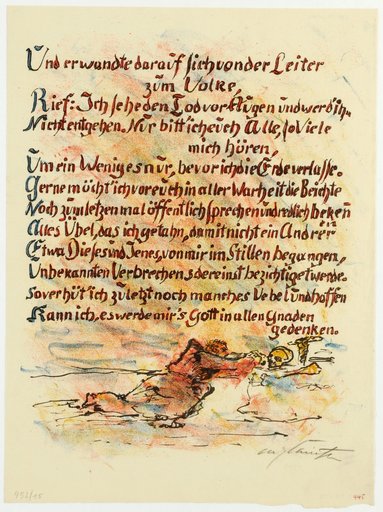 Und er wandte darauf sich von der Leiter
zum Volke,
Rief: Ich sehe den Tod vor Augen und werd ihm
Nicht entgehen. Nur bitt ich euch Alle, so Viele
mich hören,
Um ein Weniges nur, bevor ich die Erde verlasse.
Gerne möcht' ich vor euch in aller Warheit die Beichte
Noch zum letzen mal öffentlich sprechen und redlich
Alles Übel, das ich getahn, damit nicht ein Anderer
Etwa Dieses und Jenes, von mir im Stillen begangen,
Unbekannten Verbrechens dereinst bezichtiget werde.
So verhüt ich zuletzt noch manches Uebel und hoffen
Kann ich, es werde mir's Gott in allen Gnaden
gedenken.